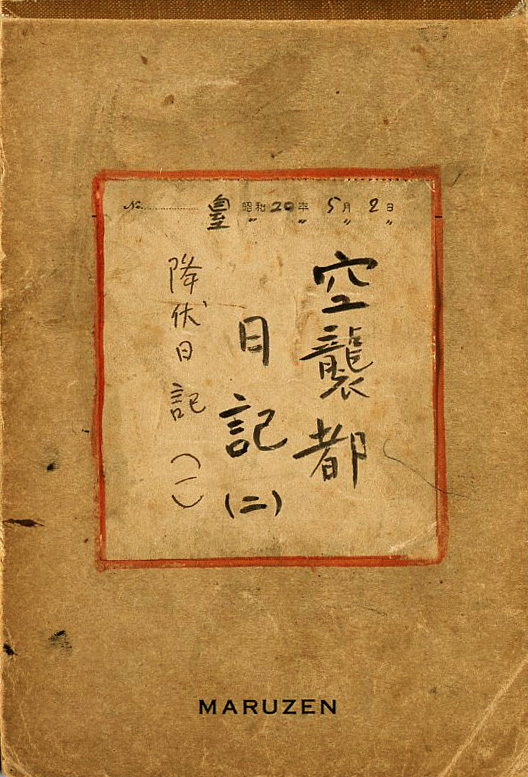 No. 皇 昭和20年 5月 2日
〃 〃 〃 〃
空襲都
日記
(二)
降伏日記(一)
MARUZEN